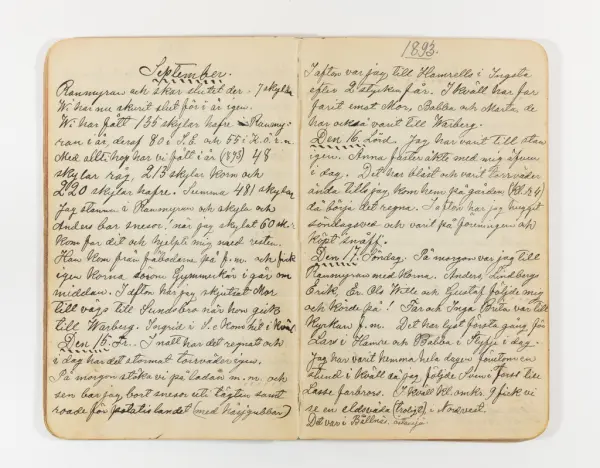 September.
Ranmyran och skar slutet der. 7 skylar
Vi har nu skurit slut för i år igen.
Vi har fått 135 skylar hafre i Ranmy-
ran i år, deraf 80 i S. E. och 55 i
Med allt i hop har vi fått i år (1893) 48
skylar råg, 213 skylar korn och
220 skylar hafre. Summa 481 skylar
Jag stannar i Ranmyran och skylar och
Anders bar snesor. när jag skylat 60 sk:r
kom far dit och hjelpte mig med resten.
Han kom från fäbodarna på f.m. och fick
igen korna i går om
middan. I afton har jag skjutsat Mor
till vägs till Sundsbro när hon gick
till Warberg. Ingrid i S. E. kom hit i kväll
Den 15. Fr. I natt har det regnat och
i dag har det stormat torrväder igen.
På morgon stöka vi på ladan m. m. och
sen bar jag bort snesor uti tägten samt
roade för potatislandet (med häjgubbar)
1893.
I afton var jag till Hamrells i Ingsta
efter 2 stycken får. I kväll har far
farit emot Mor, Babba och Marta, de
har också varit till Warberg.
Den 16. Lörd. Jag har varit till stan
igen. Anna faster åkte med mig äfven
i dag. Det har blåst och varit torrväder
ända till jag kom hem på gården (Kl. 4)
då börja det regna. I afton har jag huggit
söndagsved och varit på föreningen och
köpt snäft.
Den 17. Söndag. På morgon var jag till
Ranmyran med korna. Anders, Lindbergs
Erik, Er. Ols Wille och Gustaf följde mig
och körde på! Far och Inga Brita var till
Kyrkan f. m. Det har lyst första gång för
Lars i Hamre och Babba i Styfje i dag.
Jag har varit hemma hela dagen förutom en
stund i kväll då jag följde Svens först till
Lasse farbrors. I kväll Kl. omkr. 9 fick vi
se en eldsvåda (troligt) i Nordvest.
Det var i Bollnäs.